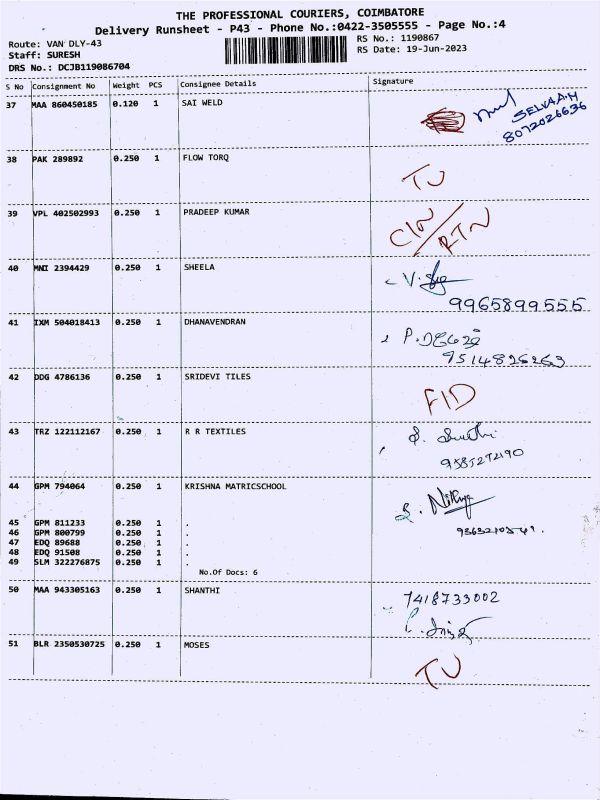 THE PROFESSIONAL COURIERS, COIMBATORE
Delivery Runsheet - P43 - Phone No.:0422-3505555 - Page No.:4
Route: VAN DLY-43
RS No.: 1190867
Staff: SURESH
RS Date: 19-Jun-2023
DRS No.: DCJB119086704
S No Consignment No Weight PCS Consignee Details Signature
37 MAA 860450185 0.120 1 SAI WELD
SELVAAN
8072026636
38 PAK 289892 0.250 1 FLOW TORQ
TU
39 VPL 402502993 0.250 1 PRADEEP KUMAR
CLN/RTN
40 MNI 2394429 0.250 1 SHEELA
9965899555
41 IXM 504018413 0.250 1 DHANAVENDRAN
9514826263
42 DDG 4786136 0.250 1 SRIDEVI TILES
FID
43 TRZ 122112167 0.250 1 R R TEXTILES
44 GPM 794064 0.250 1 KRISHNA MATRICSCHOOL
S. Nithya
45 GPM 811233 0.250 1 .
46 GPM 800799 0.250 1 .
47 EDQ 89688 0.250 1 .
48 EDQ 91508 0.250 1 .
49 SLM 322276875 0.250 1 .
No.Of Docs: 6
50 MAA 943305163 0.250 1 SHANTHI
7418733002
51 BLR 2350530725 0.250 1 MOSES
TU